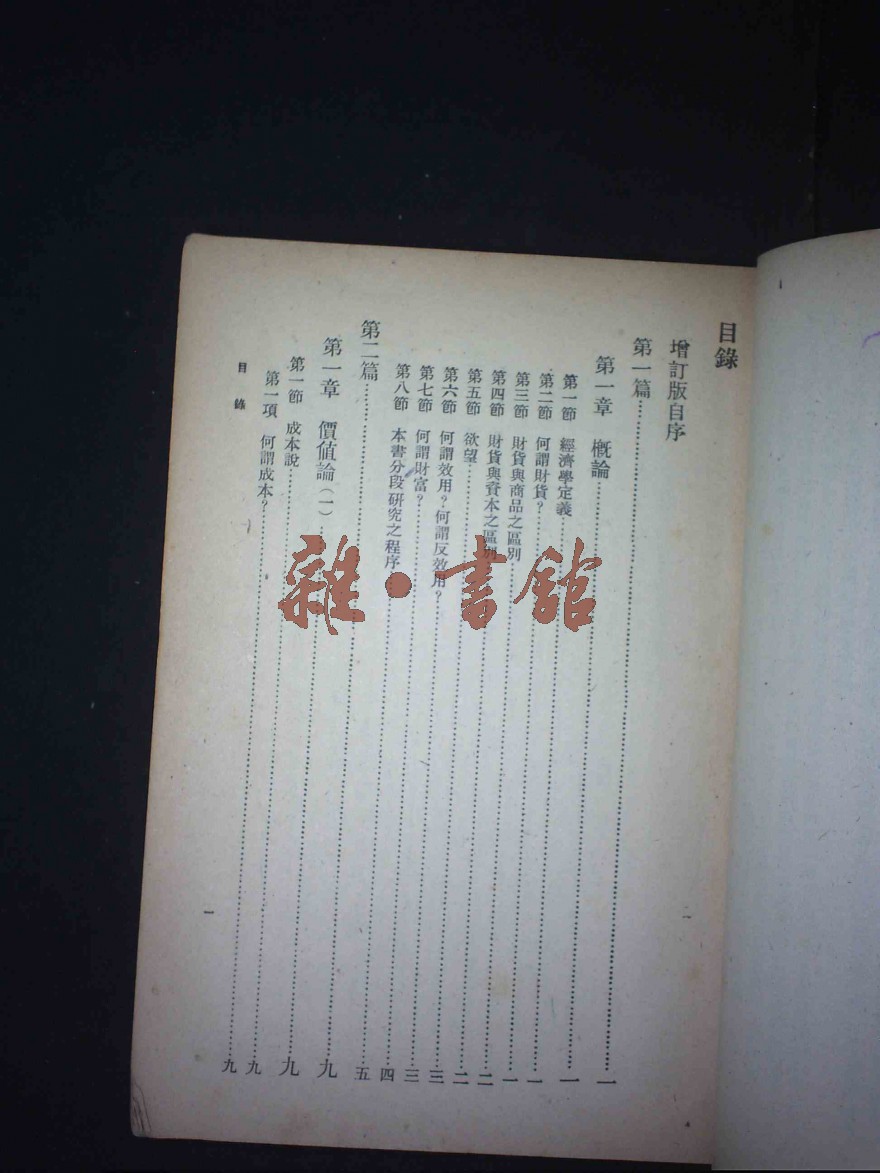 目錄
增訂版自序
第一篇……一
第一章　概論……一
第一節　經濟學定義……一
第二節　何謂財貨？……一
第三節　財貨與商品之區別……二
第四節　財貨與資本之區別……二
第五節　欲望……三
第六節　何謂效用？何謂反效用？……三
第七節　何謂財富？……四
第八節　本書分段研究之程序……五
第二篇……九
第一章　價値論（一）……九
第一節　成本說……九
第一項　何謂成本？……九
目錄　一
雜·書館